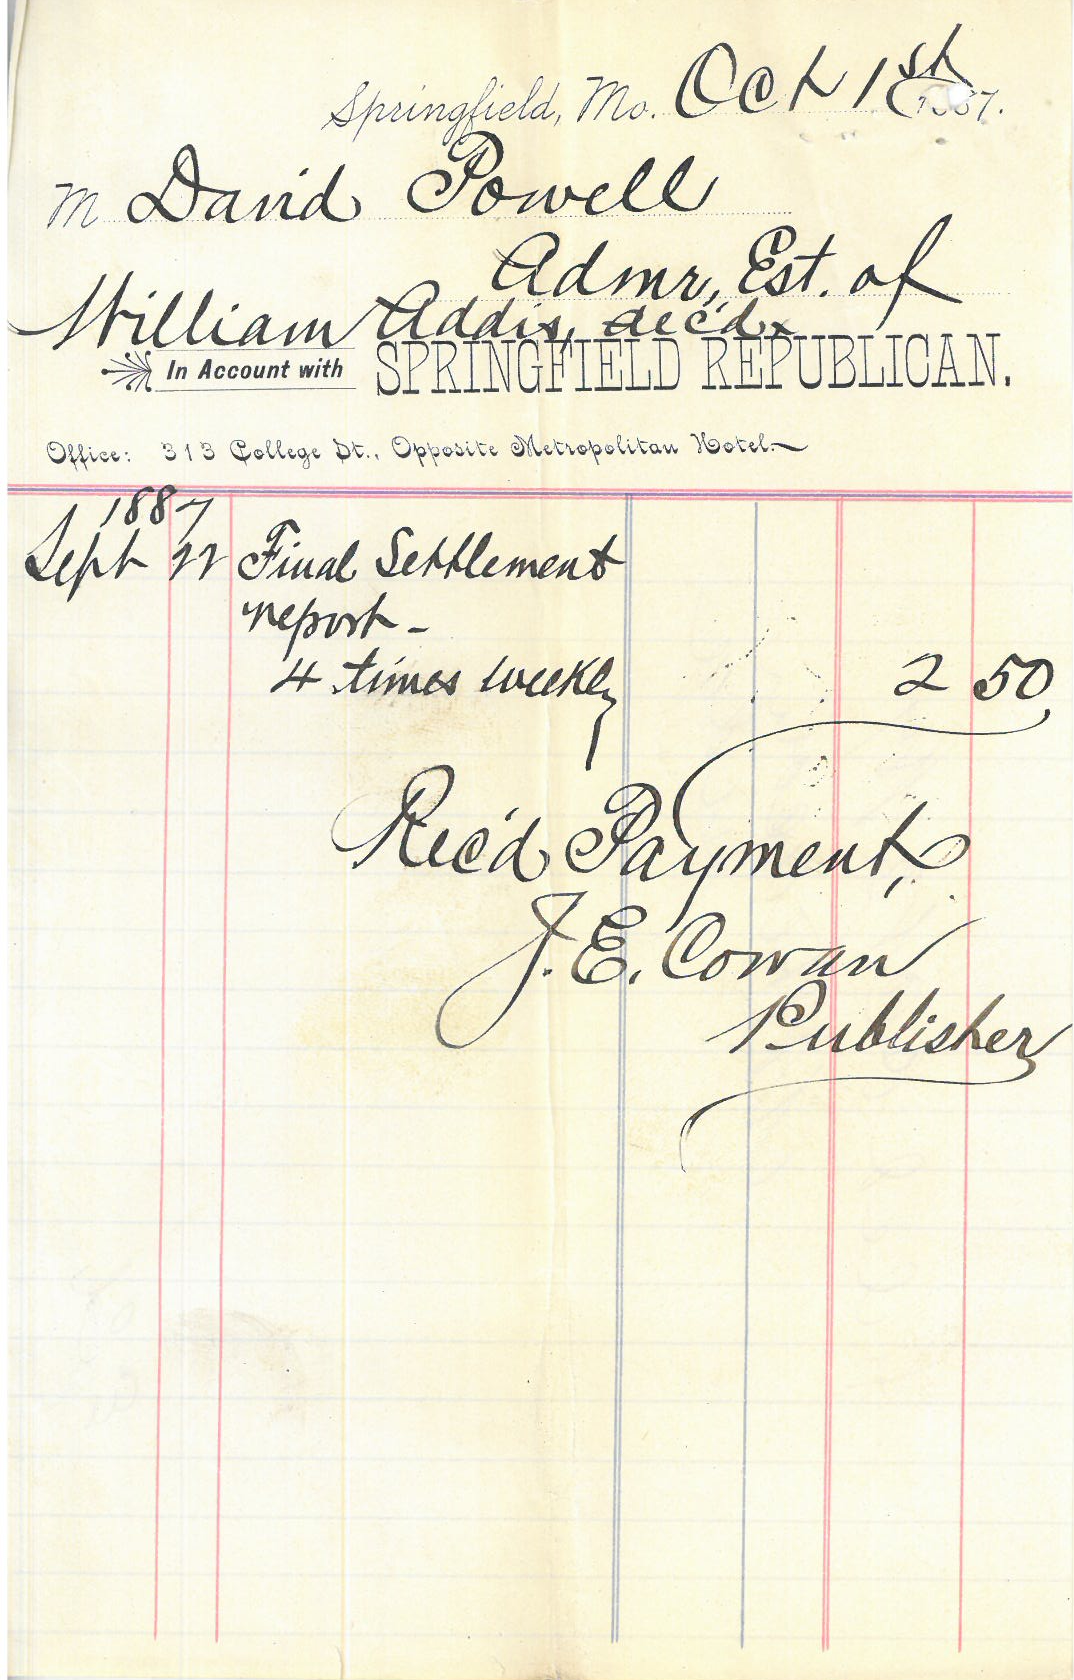 Springfield, Mo. Oct 1st 1887.
M David Powell
Admr, Est. of
William Addis, dec'd.
In Account with SPRINGFIELD REPUBLICAN.
Office: 313 College St., Opposite Metropolitan Hotel.
1887
Sept 22 Final Settlement
report -
4 times weekly 2 50
Rec'd Payment,
J. E. Cowan
Publisher